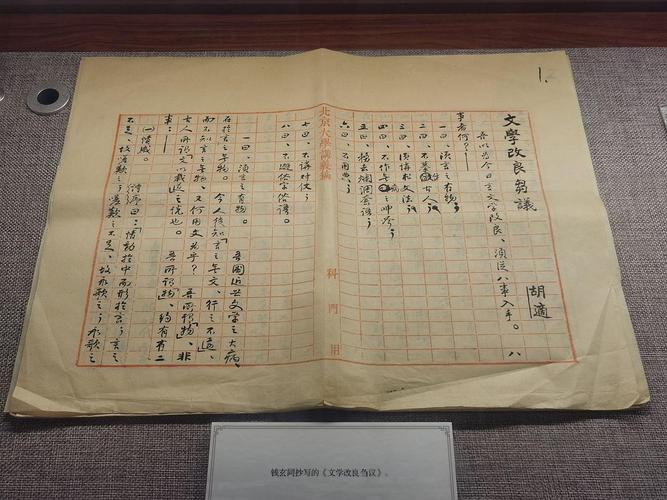 1.
文學改良芻議
胡適
吾以為今日言文學改良、須從八事入手。八
事者何？
一曰、須言之有物；
二曰、不摹仿古人；
三曰、須講求文法；
四曰、不作無病之呻吟；
五曰、務去爛調套語；
六曰、不用典；
北京大學講義稿
科門用
七曰、不講對仗；
八曰、不避俗字俗語。
一曰、須言之有物。 吾國近世文學之大病、
在於言之無物。今人徒知「言之無文、行之不遠」、
而不知言之無物、又何用文為乎？吾所謂「物」、非
古人所謂「文以載道」之說也。吾所謂「物」、約有二
事：——
(一)情感。 詩序曰：「情動於中而形於言；言之
不足、故嗟歎之；嗟歎之不足、故永歌之；永歌之
钱玄同抄写的《文学改良刍议》。